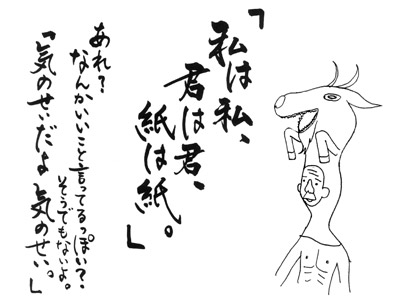 「私は私、
君は君、
紙は紙。」
あれ?
なんかいいこと言ってるっぽい?
そうでもないよ。
「気のせいだよ気のせい。」